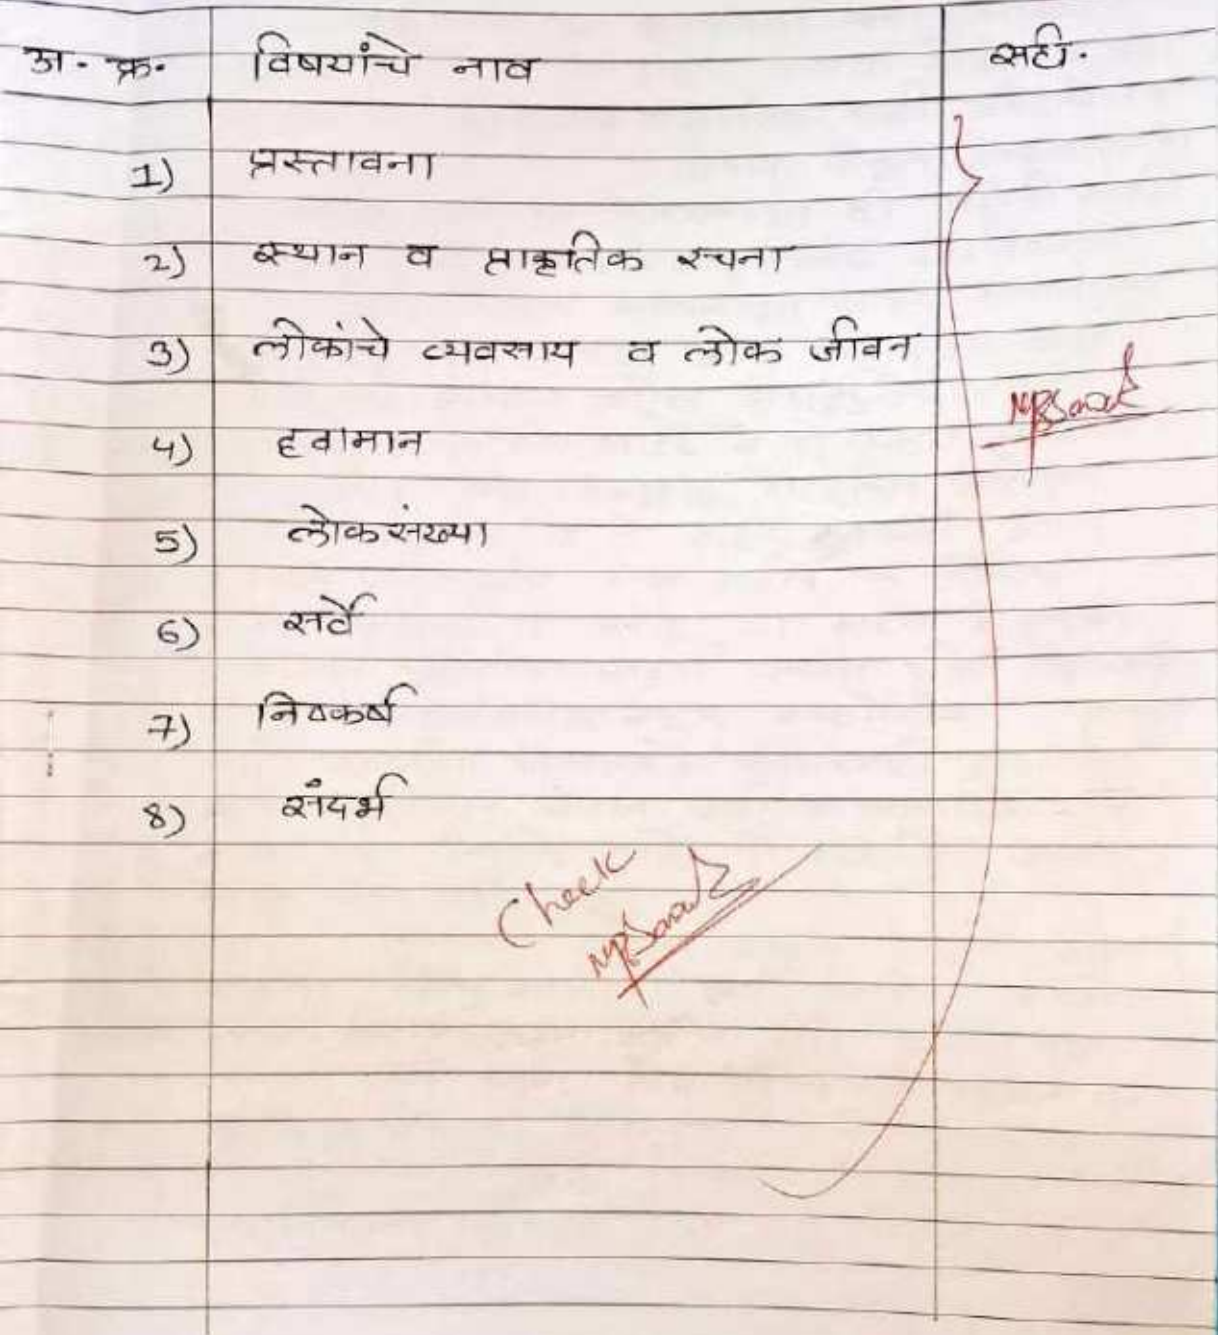 अ. क्र. विषयांचे नाव सही.
1) प्रस्तावना
2) स्थान व प्राकृतिक रचना
3) लोकांचे व्यवसाय व लोक जीवन
4) हवामान
5) लोकसंख्या
6) सर्वे
7) निष्कर्ष
8) संदर्भ
Check